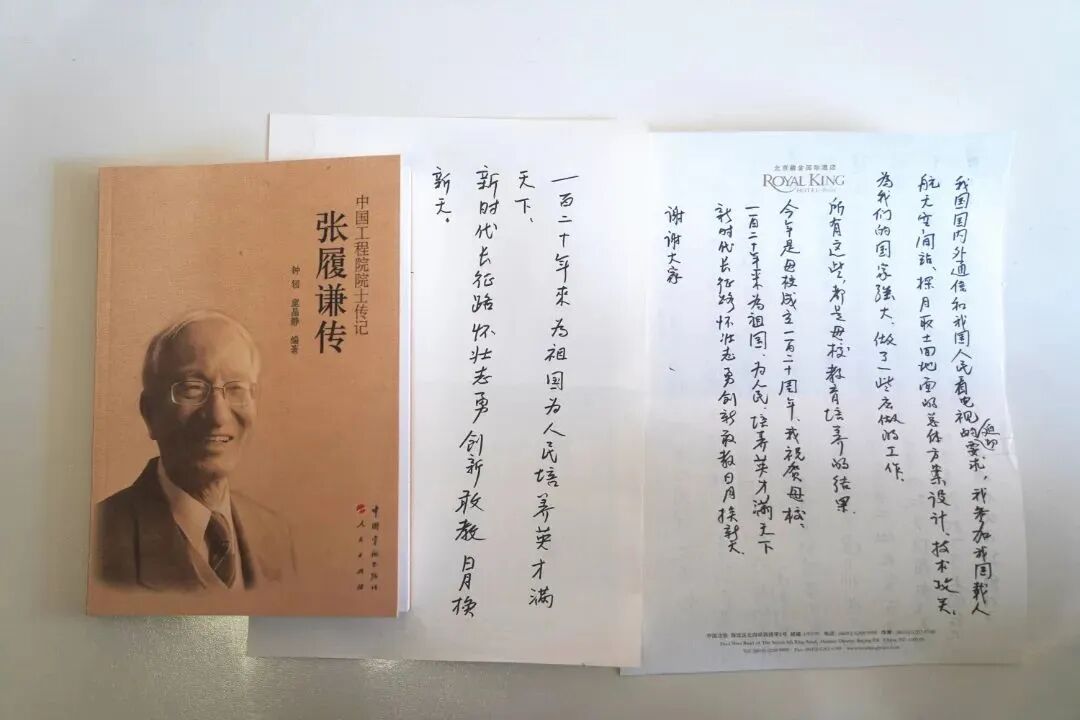 中国工程院院士传记
张履谦传
编著
人民出版社
一百二十年来 为祖国为人民培养英才满
天下、
新时代长征路怀壮志勇创新敢教日月换
新天。
ROYAL KING
我国国内外通信和我国人民看电视的迫切要求，我参加我国载人
航天空间站、探月取土回地面的总体方案设计、技术攻关、
为我们的国家强大、做了一些应做的工作.
所有这些，都是母校教育培养的结果.
今年是母校成立一百二十周年、我祝贺母校、
一百二十年来为祖国、为人民、培养英才满天下
新时代长征路怀壮志勇创新敢教日月换新天.
谢谢大家